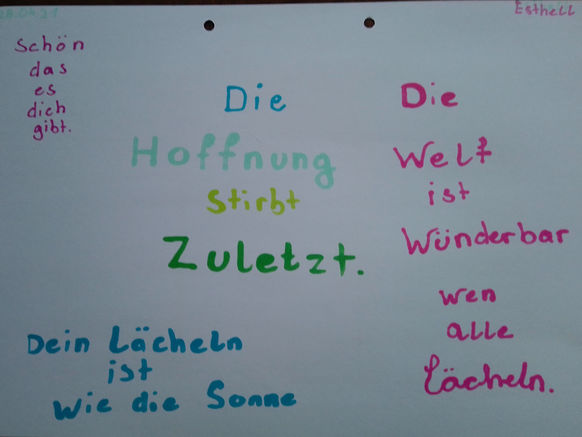 28.04.21
Esthell
Schön
das
es
dich
gibt.
Die
Hoffnung
Stirbt
Zuletzt.
Die
Welt
ist
Wünderbar
wen
alle
Lächeln.
Dein Lächeln
ist
wie die Sonne